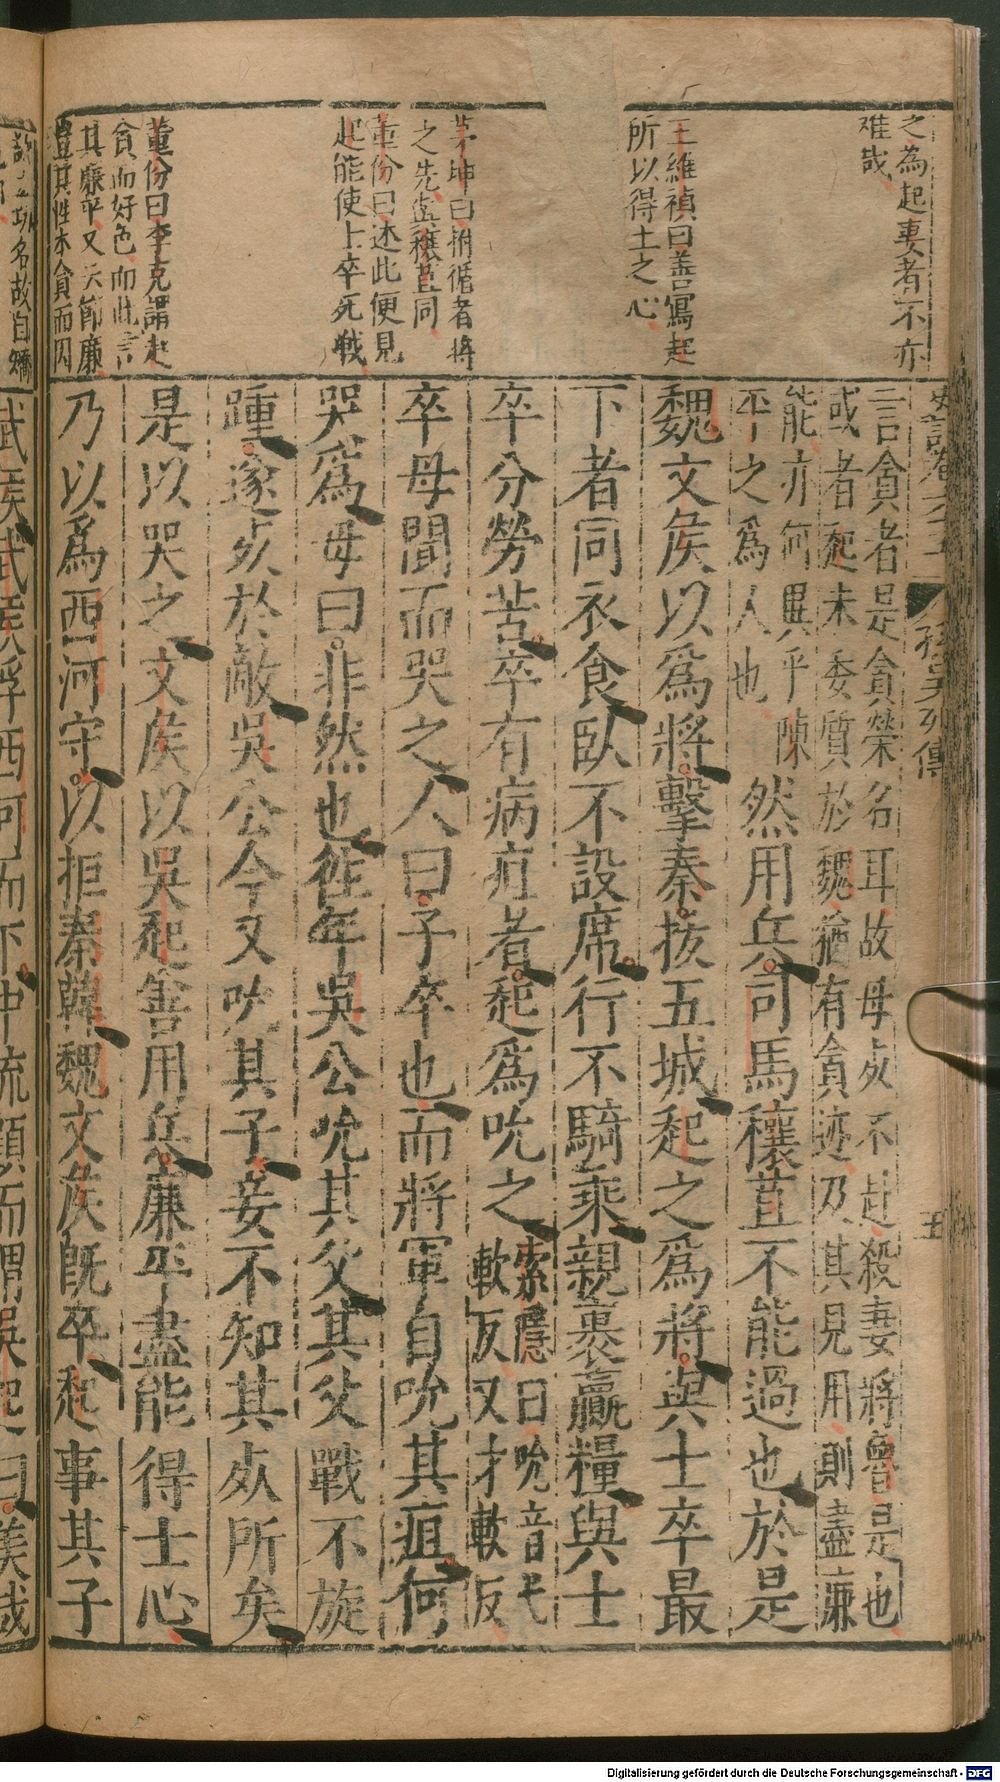 之為起妻者不亦
难哉
王維禎曰善寫起
所以得士之心
茅坤曰拊循者將
之先盖穰苴同
董份曰述此便見
起能使士卒死戦
董份曰李克謂起
貪而好色而此言
其廉平又夫節廉
豈其性本貪而因
史記卷六十五 孫吳列傳 五
言貪者是貪榮名耳故母死不赴殺妻將魯是也
或者起未委質於魏猶有貪迹及其見用則盡廉
能亦何異乎陳
平之爲人也
然用兵司馬穰苴不能過也於是
魏文侯以爲將擊秦拔五城起之爲將與士卒最
下者同衣食臥不設席行不騎乘親裹贏糧與士
卒分勞苦卒有病疽者起爲吮之
索隱曰吮音弋
軟反又才軟反
卒母聞而哭之人曰子卒也而將軍自吮其疽何
哭爲母曰非然也徃年吳公吮其父其父戰不旋
踵遂死於敵吳公今又吮其子妾不知其死所矣
是以哭之文侯以吳起善用兵廉平盡能得士心
乃以爲西河守以拒秦韓魏文侯旣卒起事其子
功名故自矯
武侯武侯浮西河而下中流顧而謂吳起曰美哉
Digitalisierung gefördert durch die Deutsche Forschungsgemeinschaft - DFG